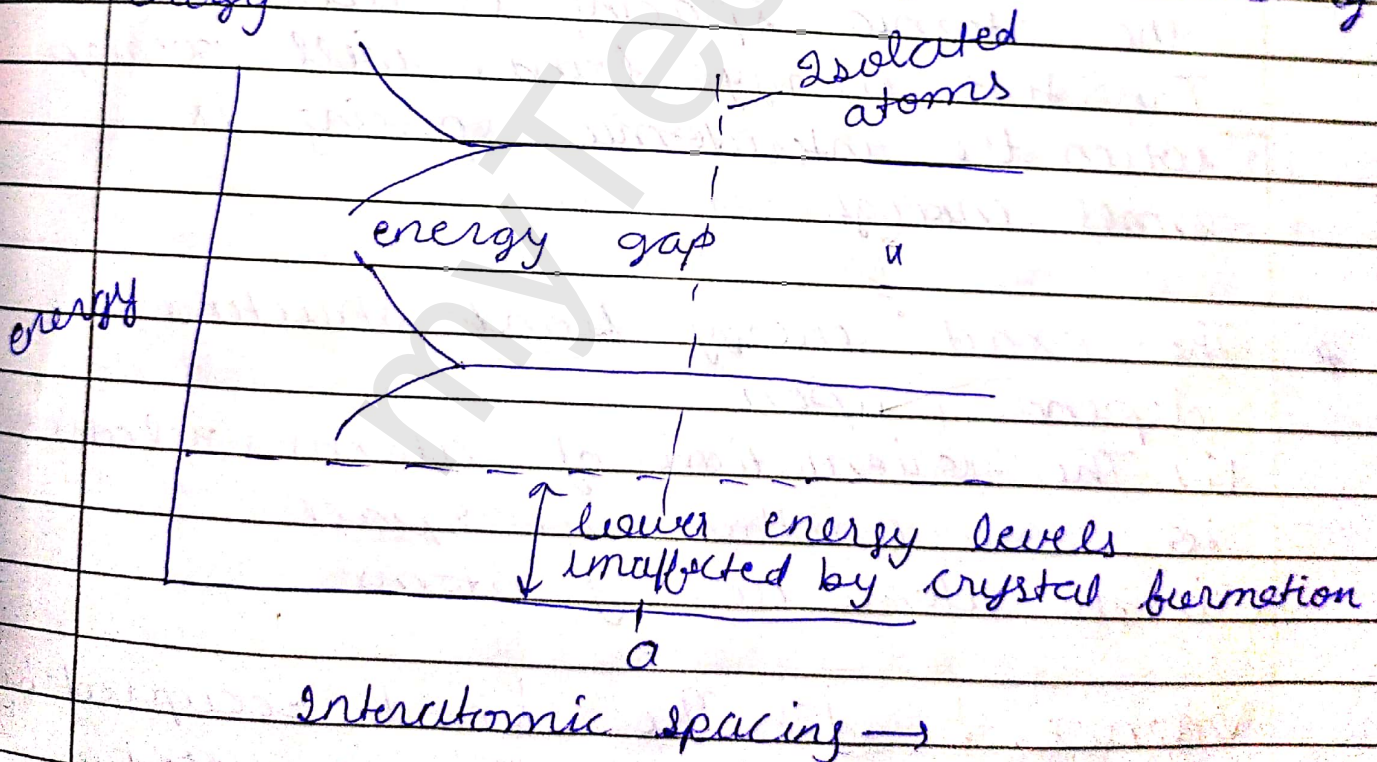 energy
Isolated
atoms
energy gap "
energy
lower energy levels
unaffected by crystal formation
a
Interatomic spacing →